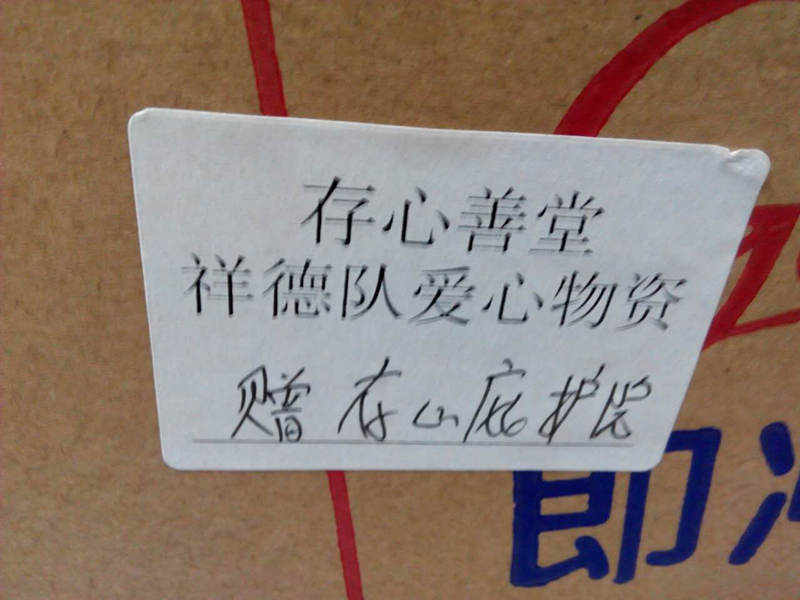 存心善堂
祥德队爱心物资
赠 存心庇护院
即